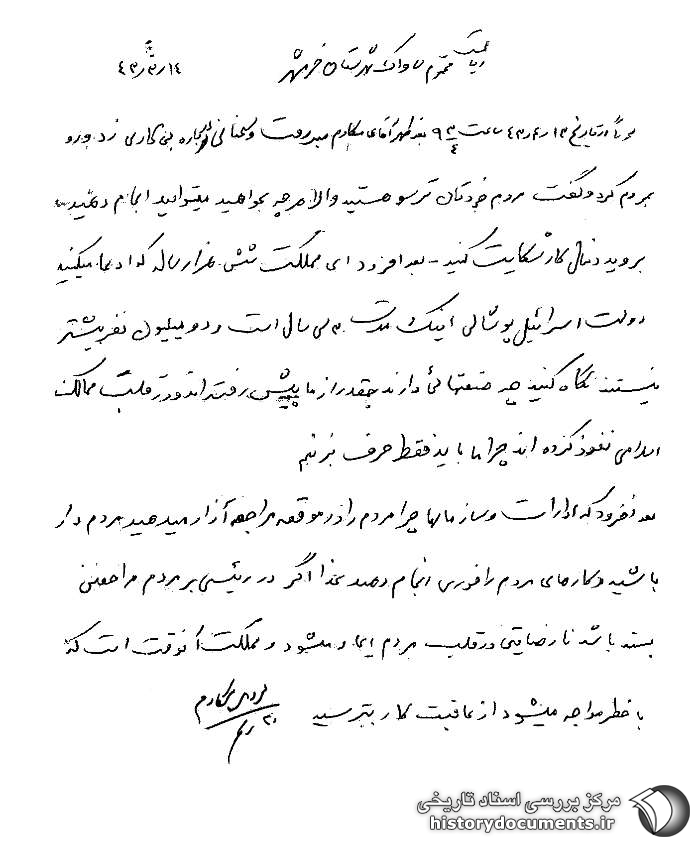 ریاست محترم ساواک شهرستان خرمشهر ۴۳/۳/۱۴
از تاریخ ساعت ۹ بعدظهر آقای مکارم منبر رفت و سخنانی درباره بی کاری زد و رو
بمردم کرد و گفت مردم خودتان ترسو هستید والا هر چه بخواهید میتوانید انجام دهید
بروید دنبال کار شکایت کنید - بعد افزود ای مملکت شش هزار ساله که ادعا میکنید
دولت اسرائیل پوشالی اینک مدت سی سال است و دو میلیون نفر بیشتر
نیستند نگاه کنید چه صنعتهائی دارند چقدر از ما پیش رفته اند و در قلب ممالک
اسلامی نفوذ کرده اند چرا ما باید فقط حرف بزنیم
بعد افزود که ادارات و سازمانها چرا مردم را در موقعه مراجعه آزار میدهید مردم دار
باشید و کارهای مردم را فوری انجام دهید بخدا اگر در رئیسی بر مردم مراجعین
بسته باشد نارضایتی در قلب مردم ایجاد میشود و مملکت آنوقت است که
با خطر مواجه میشود از عاقبت کار بترسید
مرکز بررسی اسناد تاریخی
historydocuments.ir